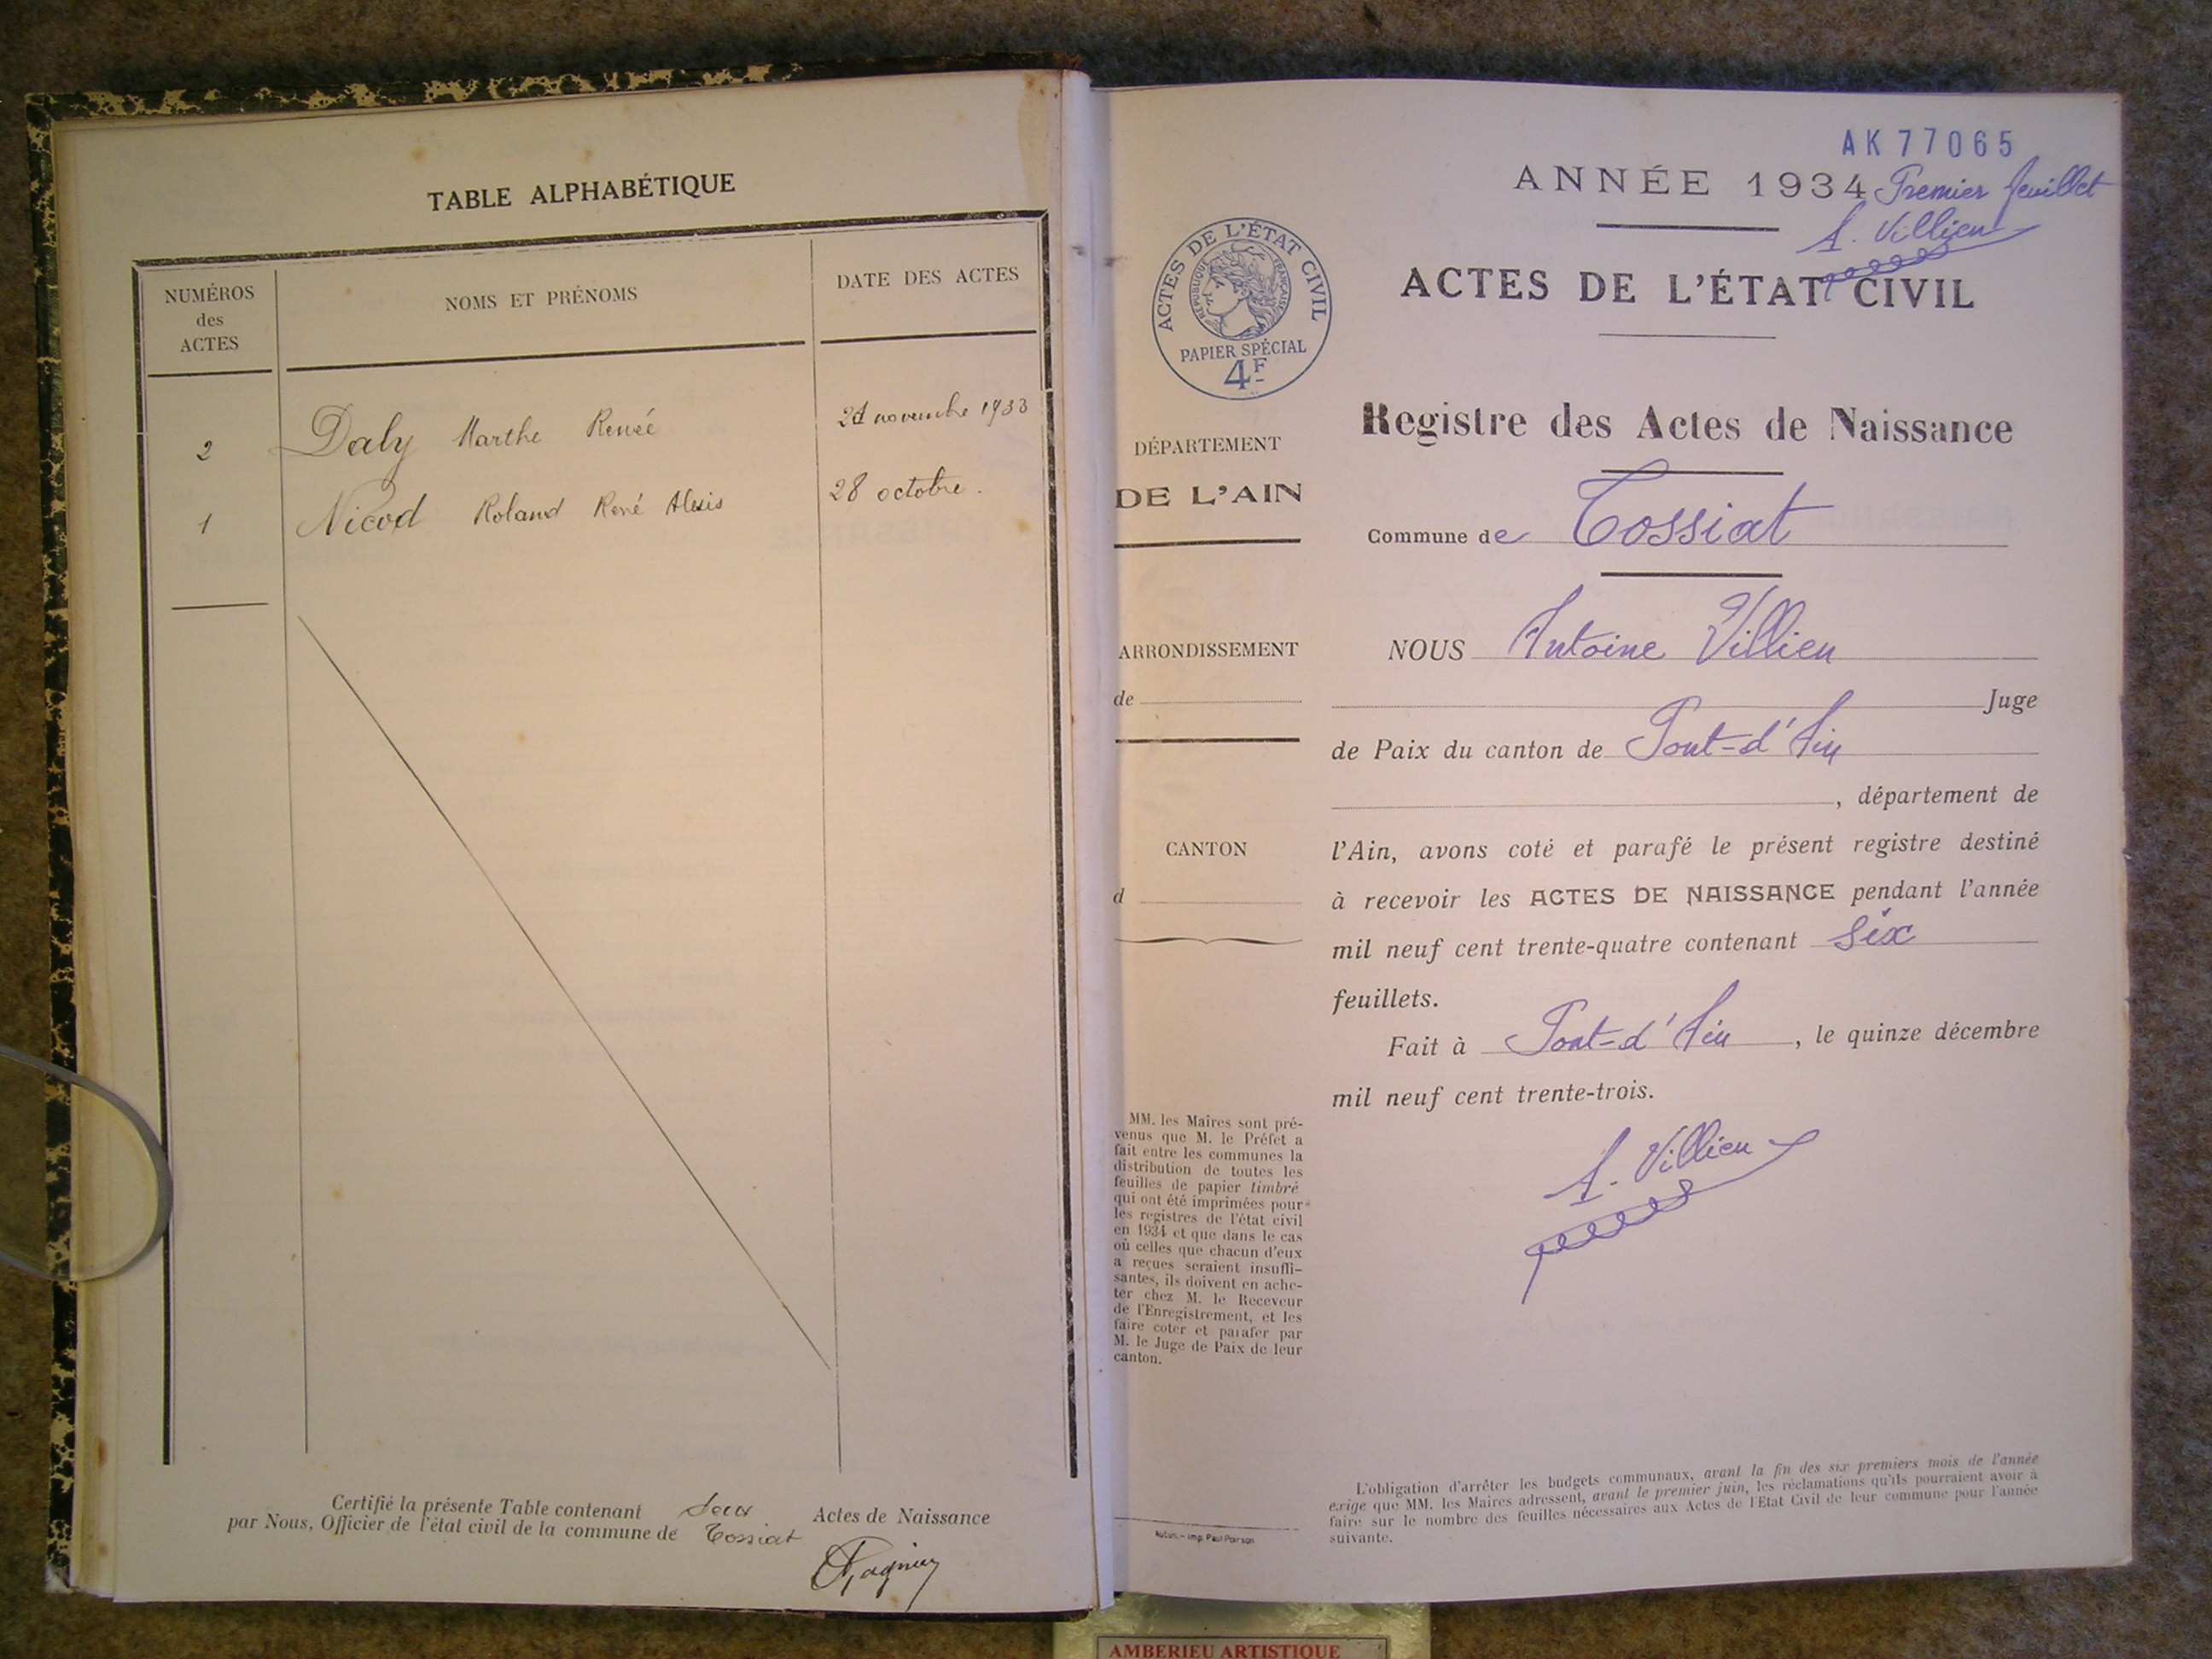 TABLE ALPHABÉTIQUE
NUMÉROS
des
ACTES
NOMS ET PRÉNOMS
DATE DES ACTES
2 Daly Marthe Renée novembre 1933
1 Nicod Roland René Alexis 28 octobre.
Certifié la présente Table contenant deux Actes de Naissance
par Nous, Officier de l'état civil de la commune de Tossiat
AK 77065
ANNÉE 1934 Premier feuillet
A. Villien
ACTES DE L'ÉTAT CIVIL
ACTES DE L'ÉTAT CIVIL
RÉPUBLIQUE FRANÇAISE
PAPIER SPÉCIAL
4F
Registre des Actes de Naissance
DÉPARTEMENT
DE L'AIN
Commune de Tossiat
ARRONDISSEMENT
de
CANTON
d
NOUS Antoine Villien
Juge
de Paix du canton de Pont-d'Ain
, département de
l'Ain, avons coté et parafé le présent registre destiné
à recevoir les ACTES DE NAISSANCE pendant l'année
mil neuf cent trente-quatre contenant six
feuillets.
Fait à Pont-d'Ain, le quinze décembre
mil neuf cent trente-trois.
A. Villien
MM. les Maires sont pré-
venus que M. le Préfet a
fait entre les communes la
distribution de toutes les
feuilles de papier timbré
qui ont été imprimées pour
les registres de l'état civil
en 1934 et que dans le cas
où celles que chacun d'eux
a reçues seraient insuffi-
santes, ils doivent en ache-
ter chez M. le Receveur
de l'Enregistrement, et les
faire coter et parafer par
M. le Juge de Paix de leur
canton.
Autun.- Imp. Paul Poirson
L'obligation d'arrêter les budgets communaux, avant la fin des six premiers mois de l'année
exige que MM. les Maires adressent, avant le premier juin, les réclamations qu'ils pourraient avoir à
faire sur le nombre des feuilles nécessaires aux Actes de l'Etat Civil de leur commune pour l'année
suivante.
AMBERIEU ARTISTIQUE